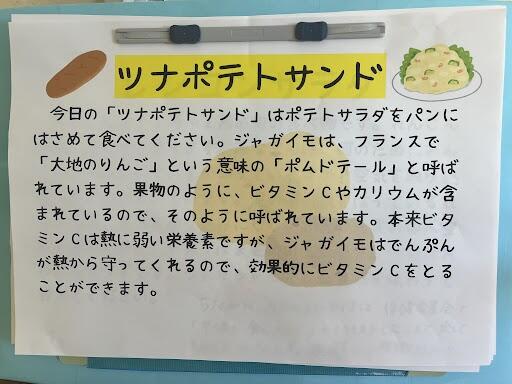 ツナポテトサンド
今日の「ツナポテトサンド」はポテトサラダをパンに
はさめて食べてください。ジャガイモは、フランスで
「大地のりんご」という意味の「ポムドテール」と呼ば
れています。果物のように、ビタミンCやカリウムが含
まれているので、そのように呼ばれています。本来ビタ
ミンCは熱に弱い栄養素ですが、ジャガイモはでんぷん
が熱から守ってくれるので、効果的にビタミンCをとる
ことができます。